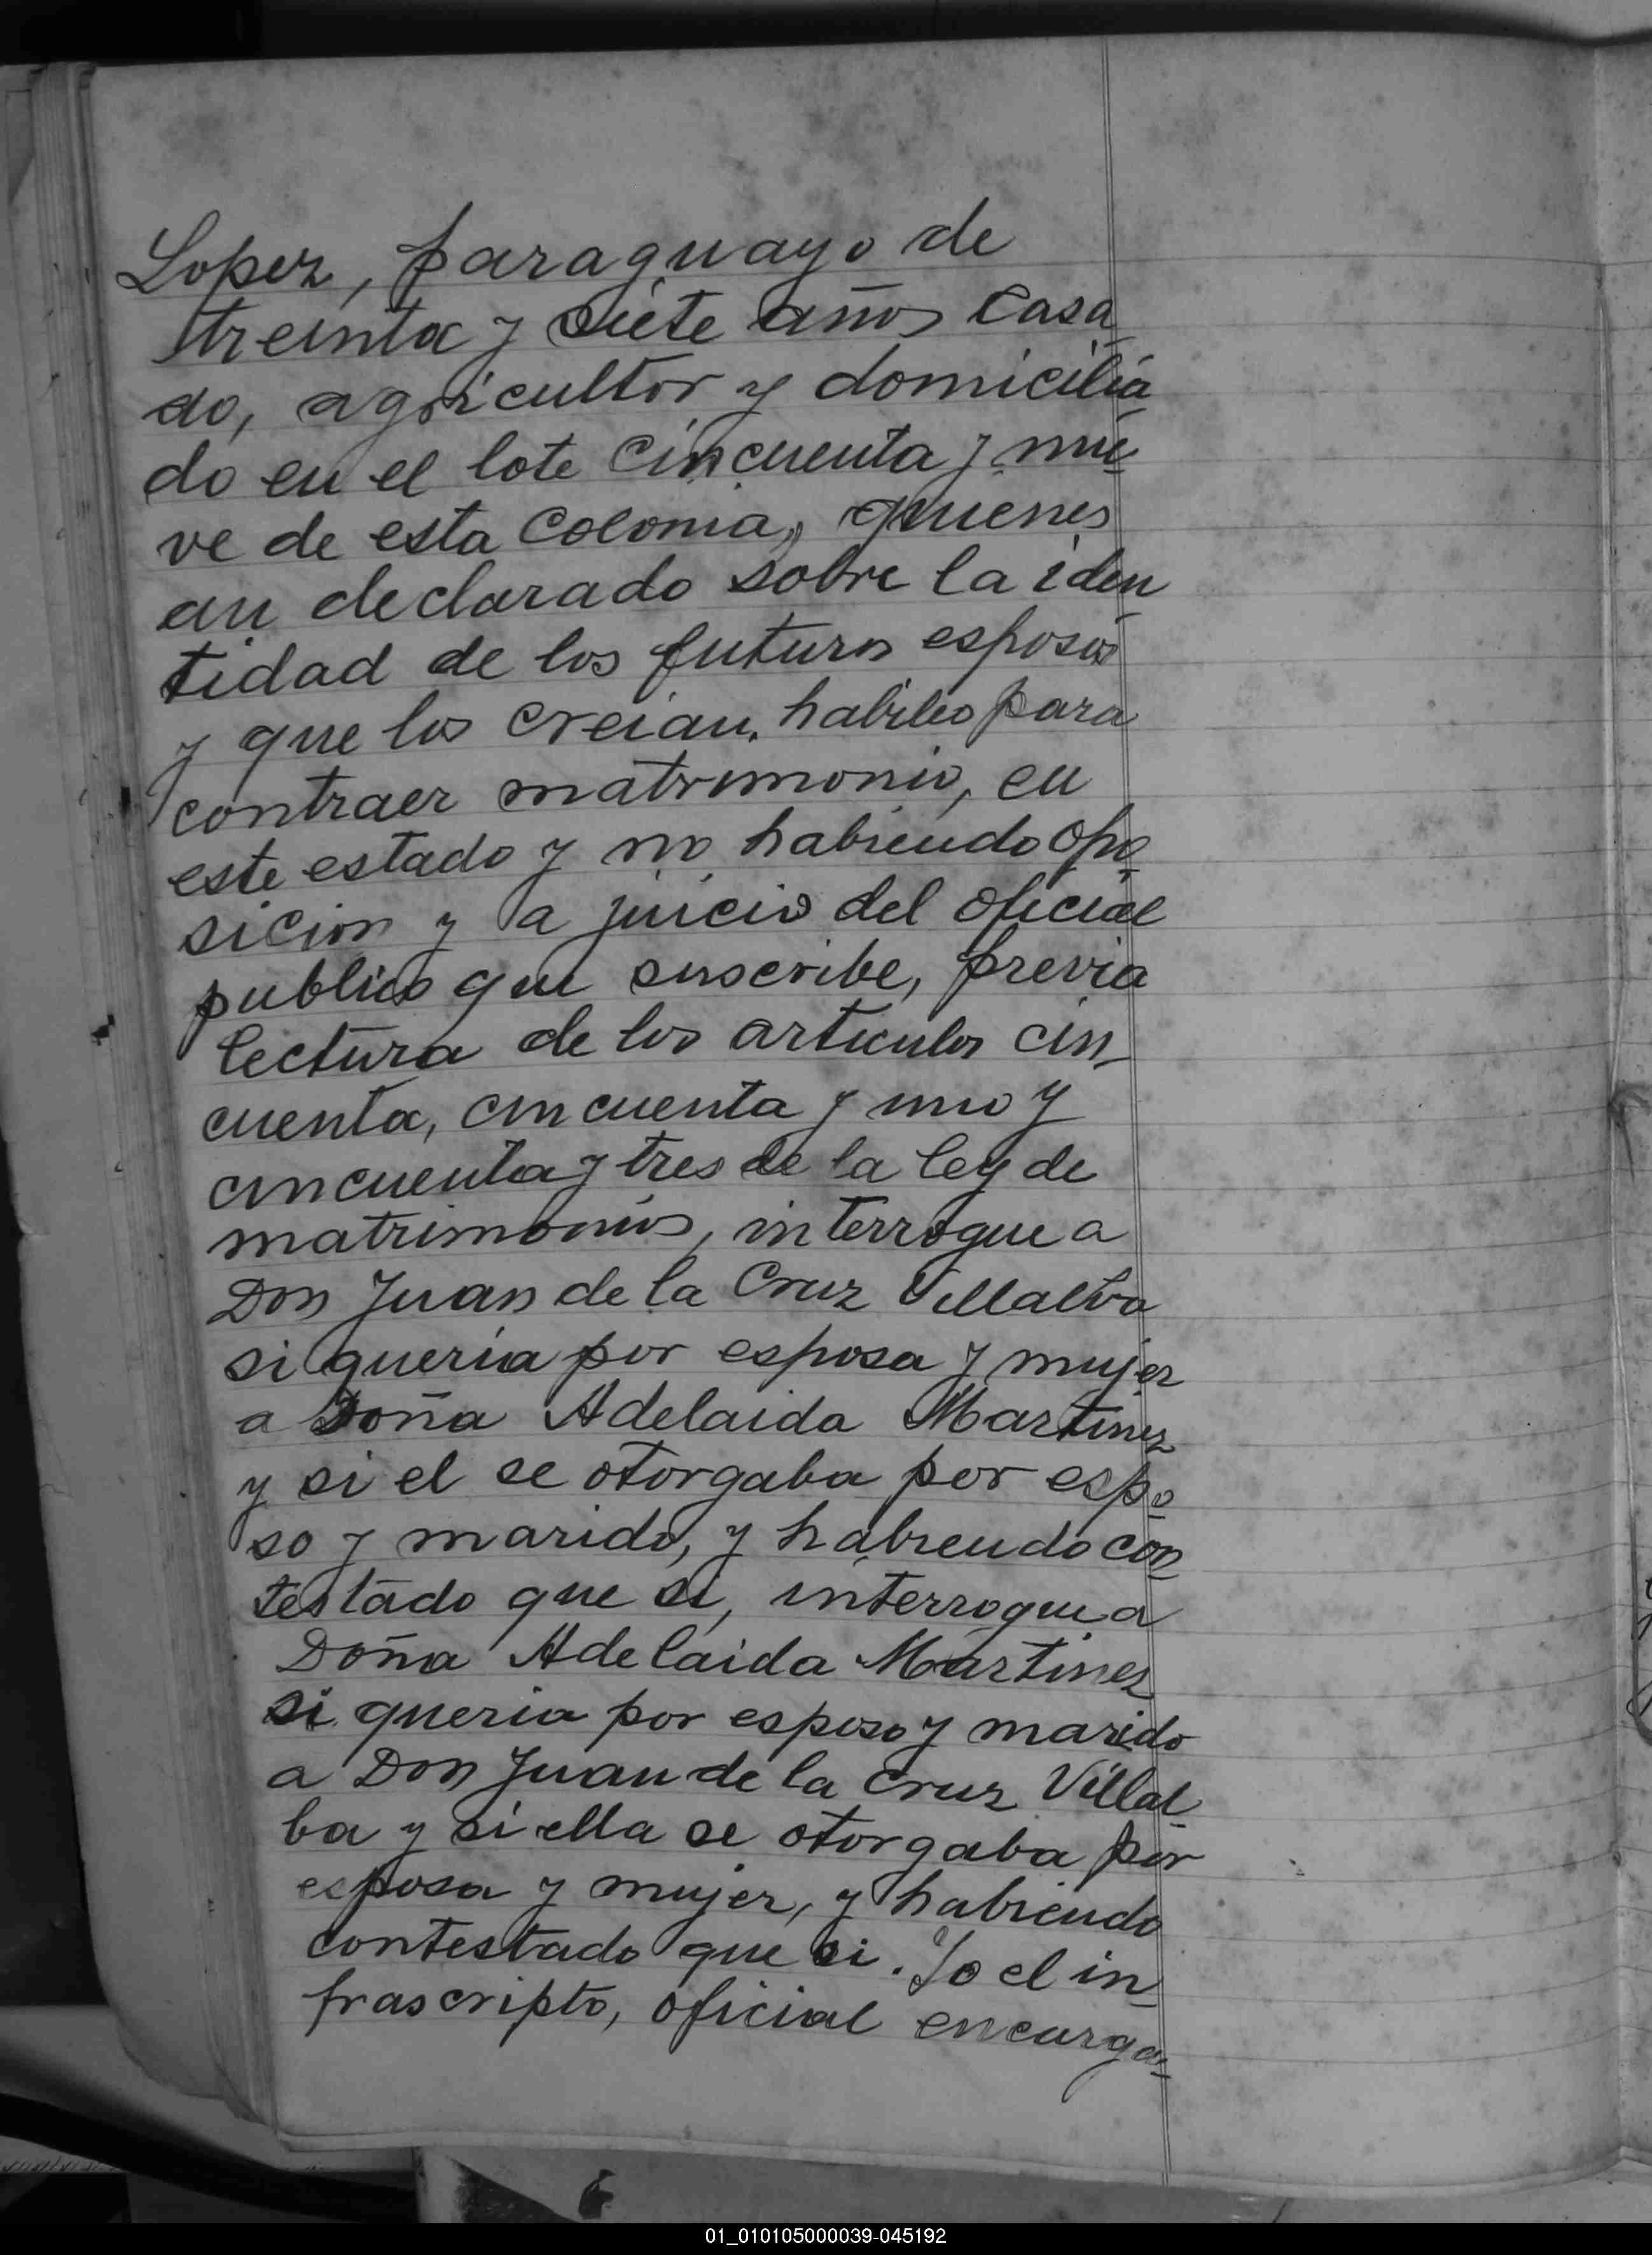 Lopez, paraguayo de
treinta y siete años casa
do, agricultor y domicilia
do en el lote cincuenta y nue
ve de esta colonia, quienes
an declarado sobre la iden
tidad de los futuros esposos
y que los creian habiles para
contraer matrimonio, en
este estado y no habiendo opo
sicion y a juicio del oficial
publico que suscribe, previa
lectura de los articulos cin
cuenta, cincuenta y uno y
cincuenta y tres de la ley de
matrimonios, interrogue a
Don Juan de la Cruz Villalba
si queria por esposa y mujer
a Doña Adelaida Martinez
y si el se otorgaba por espo
so y marido, y habiendo con
testado que si, interrogue a
Doña Adelaida Martinez
si queria por esposo y marido
a Don Juan de la Cruz Villal
ba y si ella se otorgaba por
esposa y mujer, y habiendo
contestado que si. Yo el in
frascripto, oficial encarga
01_010105000039-045192